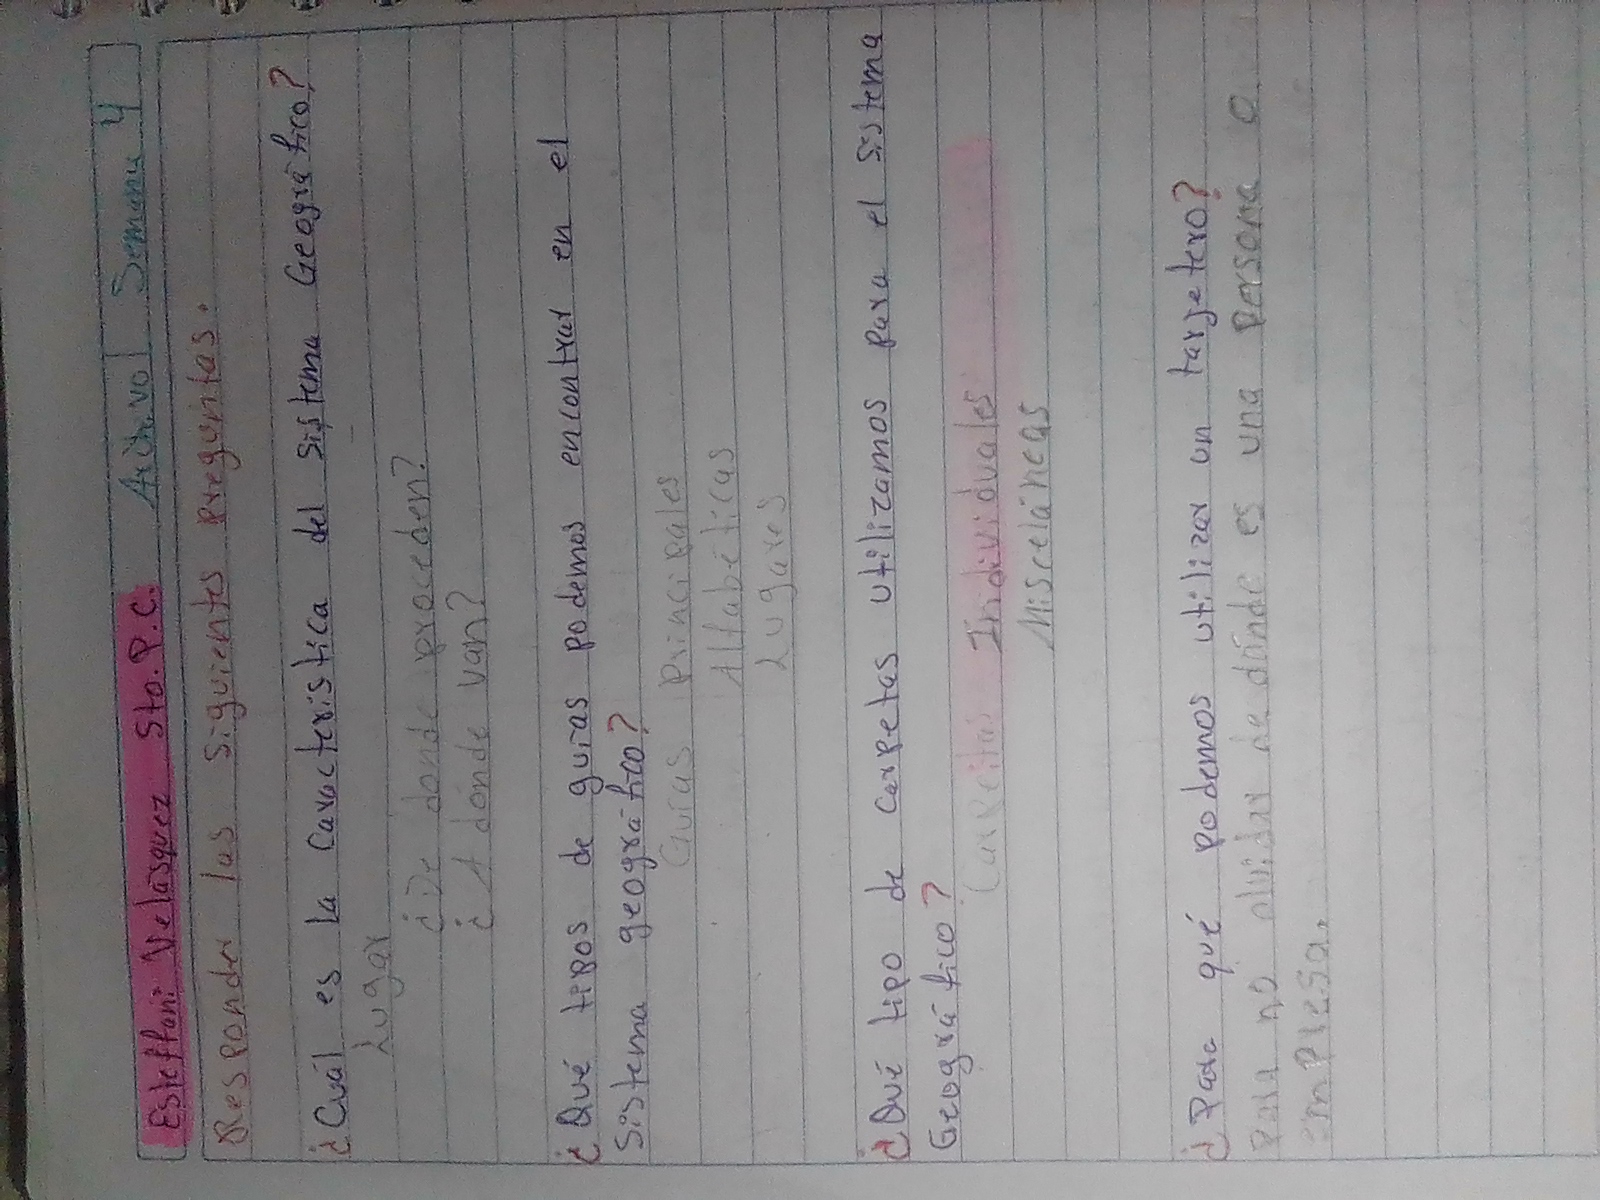 Esteffani Velásquez 5to. P.C. Archivo Semana 4
Responder las siguientes preguntas.
¿Cuál es la característica del sistema Geográfico?
Lugar
¿De donde proceden?
¿A dónde van?
¿Qué tipos de guías podemos encontrar en el
Sistema geográfico?
Guías Principales
Alfabéticas
Lugares
¿Qué tipo de carpetas utilizamos para el sistema
Geográfico?
Carpetas Individuales
Misceláneas
¿Para qué podemos utilizar un tarjetero?
Para no olvidar de dónde es una persona o
empresa.